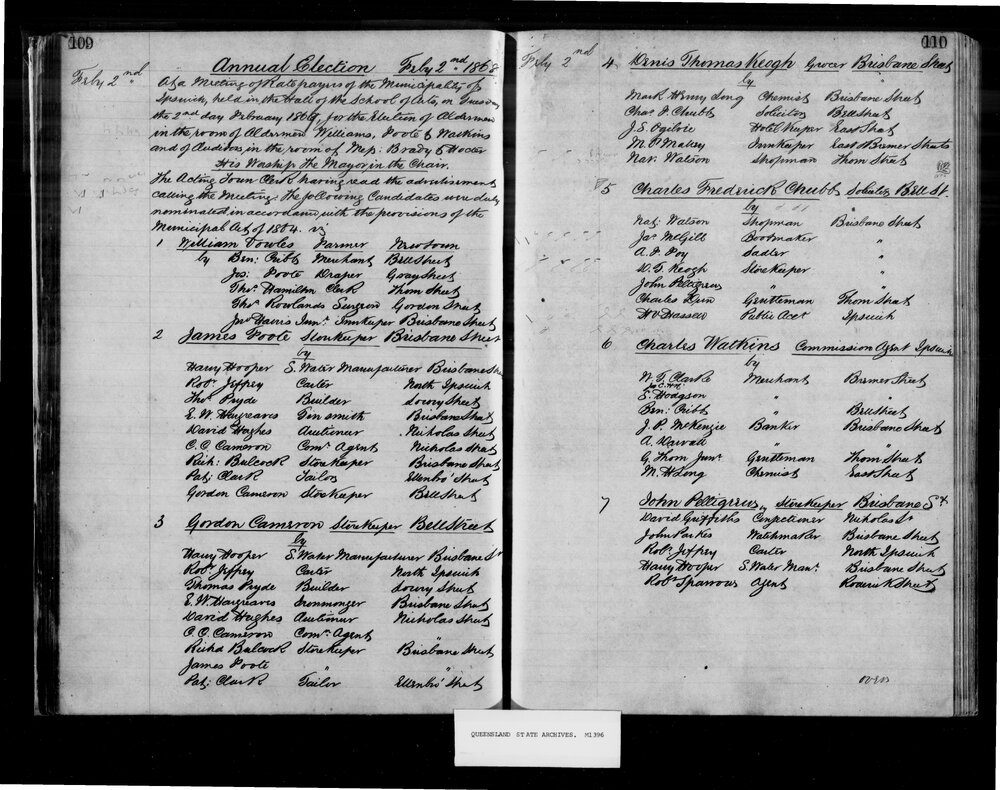 109
Feby 2nd
Annual Election Feby 2nd 1868
At a Meeting of Ratepayers of the Municipality of
Ipswich, held in the Hall of the School of Arts, on Tuesday
the 2nd day February 1869, for the Election of Aldermen
in the room of Aldermen Williams, Foote & Watkins
and of Auditors in the room of Mess: Brady &
His Worship the Mayor in the Chair.
The Acting Town Clerk having read the advertisement
calling the Meeting. The following Candidates were duly
nominated in accordance with the provisions of the
Municipal Act of 1864. viz
1 William Vowles Farmer Newtown
by Ben: Cribb Merchant Bell Street
Jos: Foote Draper Gray Street
Thos Hamilton Clerk Thorn Street
Thos Rowlands Surgeon Gordon Street
Jno Harris Junr Innkeeper Brisbane Street
2 James Foote Storekeeper Brisbane Street
by
Harry Hooper S. Water Manufacturer Brisbane St
Robt Jeffrey Carter North Ipswich
Thos Pryde Builder Lowry Street
E. W. Hargreaves Tinsmith Brisbane Street
David Hughes Auctioneer Nicholas Street
C. C. Cameron Comn Agent Nicholas Street
Rich: Bulcock Storekeeper Brisbane Street
Pat: Clark Tailor Ellenbro' Street
Gordon Cameron Storekeeper Bell Street
3 Gordon Cameron Storekeeper Bell Street
by
Harry Hooper S. Water Manufacturer Brisbane St
Robt Jeffrey Carter North Ipswich
Thomas Pryde Builder Lowry Street
E. W. Hargreaves Ironmonger Brisbane Street
David Hughes Auctioneer Nicholas Street
C. C. Cameron Comn Agent
Richd Bulcock Storekeeper Brisbane Street
James Foote " "
Pat: Clark Tailor Ellenbro' Street
110
Feby 2nd
4 Denis Thomas Keogh Grocer Brisbane Street
by
Mark Henry Long Chemist Brisbane Street
Chas F. Chubb Solicitor Bell Street
J. S. Ogilvie Hotel Keeper East Street
M. O'Malley Innkeeper East & Bremer Streets
Nat. Watson Shopman Thorn Street
5 Charles Frederick Chubb Solicitor Bell St.
by
Nat: Watson Shopman Brisbane Street
Jas McGill Bootmaker "
A. F. Foy Sadler "
D. T. Keogh Storekeeper "
John Pelligrew " "
Charles Gentleman Thorn Street
Public Acct Ipswich
6 Charles Watkins Commission Agent Ipswich
by
W. T. Clarke Merchant Bremer Street
S. Hodgson " "
Ben: Cribb " Bell Street
J. P. McKenzie Banker Brisbane Street
A. "
G. Thorn Junr Gentleman Thorn Street
M. H. Long Chemist East Street
7 John Pelligrew, Storekeeper Brisbane St
David Griffiths Confectioner Nicholas St
John Parkes Watchmaker Brisbane Street
Robt Jeffrey Carter North Ipswich
Harry Hooper S. Water Manr Brisbane Street
Robt Sparrow Agent Roderick Street
over
QUEENSLAND STATE ARCHIVES. M1396